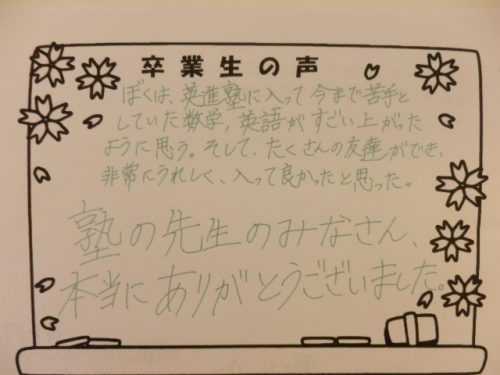 卒業生の声
ぼくは、英進塾に入って今まで苦手と
していた数学,英語がすごい上がった
ように思う。そして、たくさんの友達ができ、
非常にうれしく、入って良かったと思った。
塾の先生のみなさん、
本当にありがとうございました。